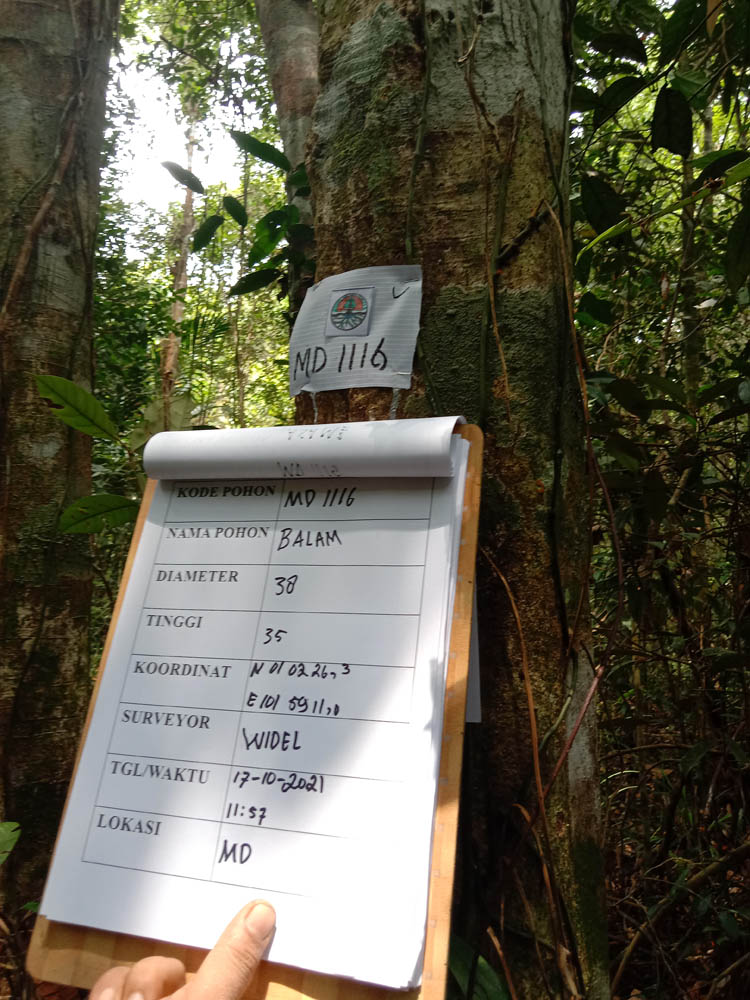 MD 1116
KODE POHON MD 1116
NAMA POHON BALAM
DIAMETER 38
TINGGI 35
KOORDINAT N 01 02 26,3
E 101 59 11,0
SURVEYOR WIDEL
TGL/WAKTU 17-10-2021
11:57
LOKASI MD